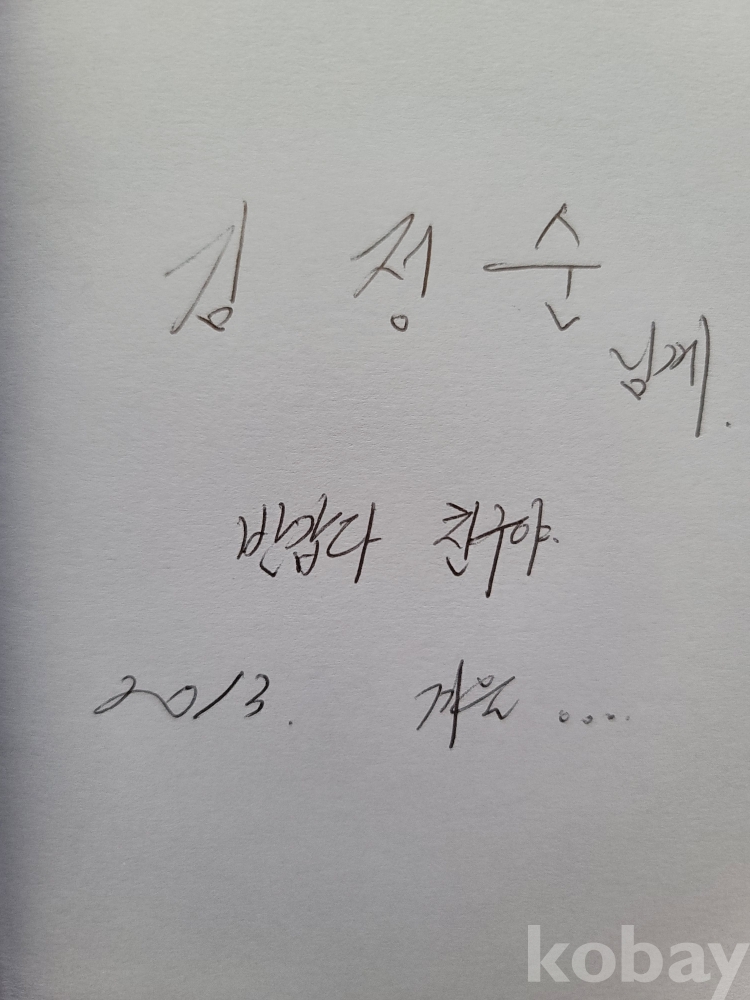 김 정순
님께.
반갑다 친구야.
2013. 겨울 ....
kobay